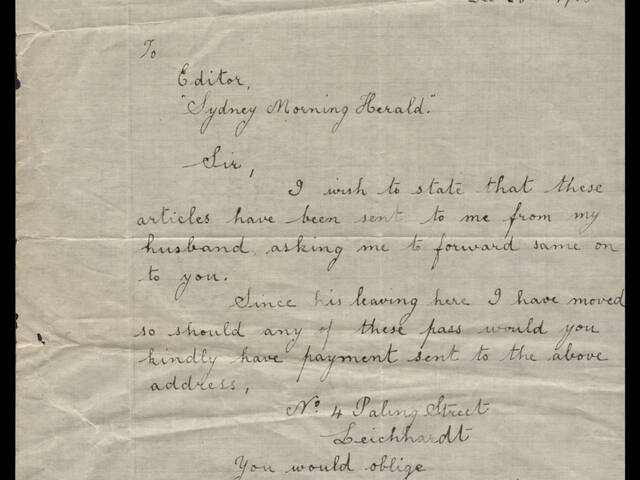 To
Editor,
"Sydney Morning Herald."
Sir,
I wish to state that these
articles have been sent to me from my
husband, asking me to forward same on
to you.
Since his leaving here I have moved
so should any of these pass would you
kindly have payment sent to the above
address,
No. 4 Paling Street
Leichhardt
You would oblige